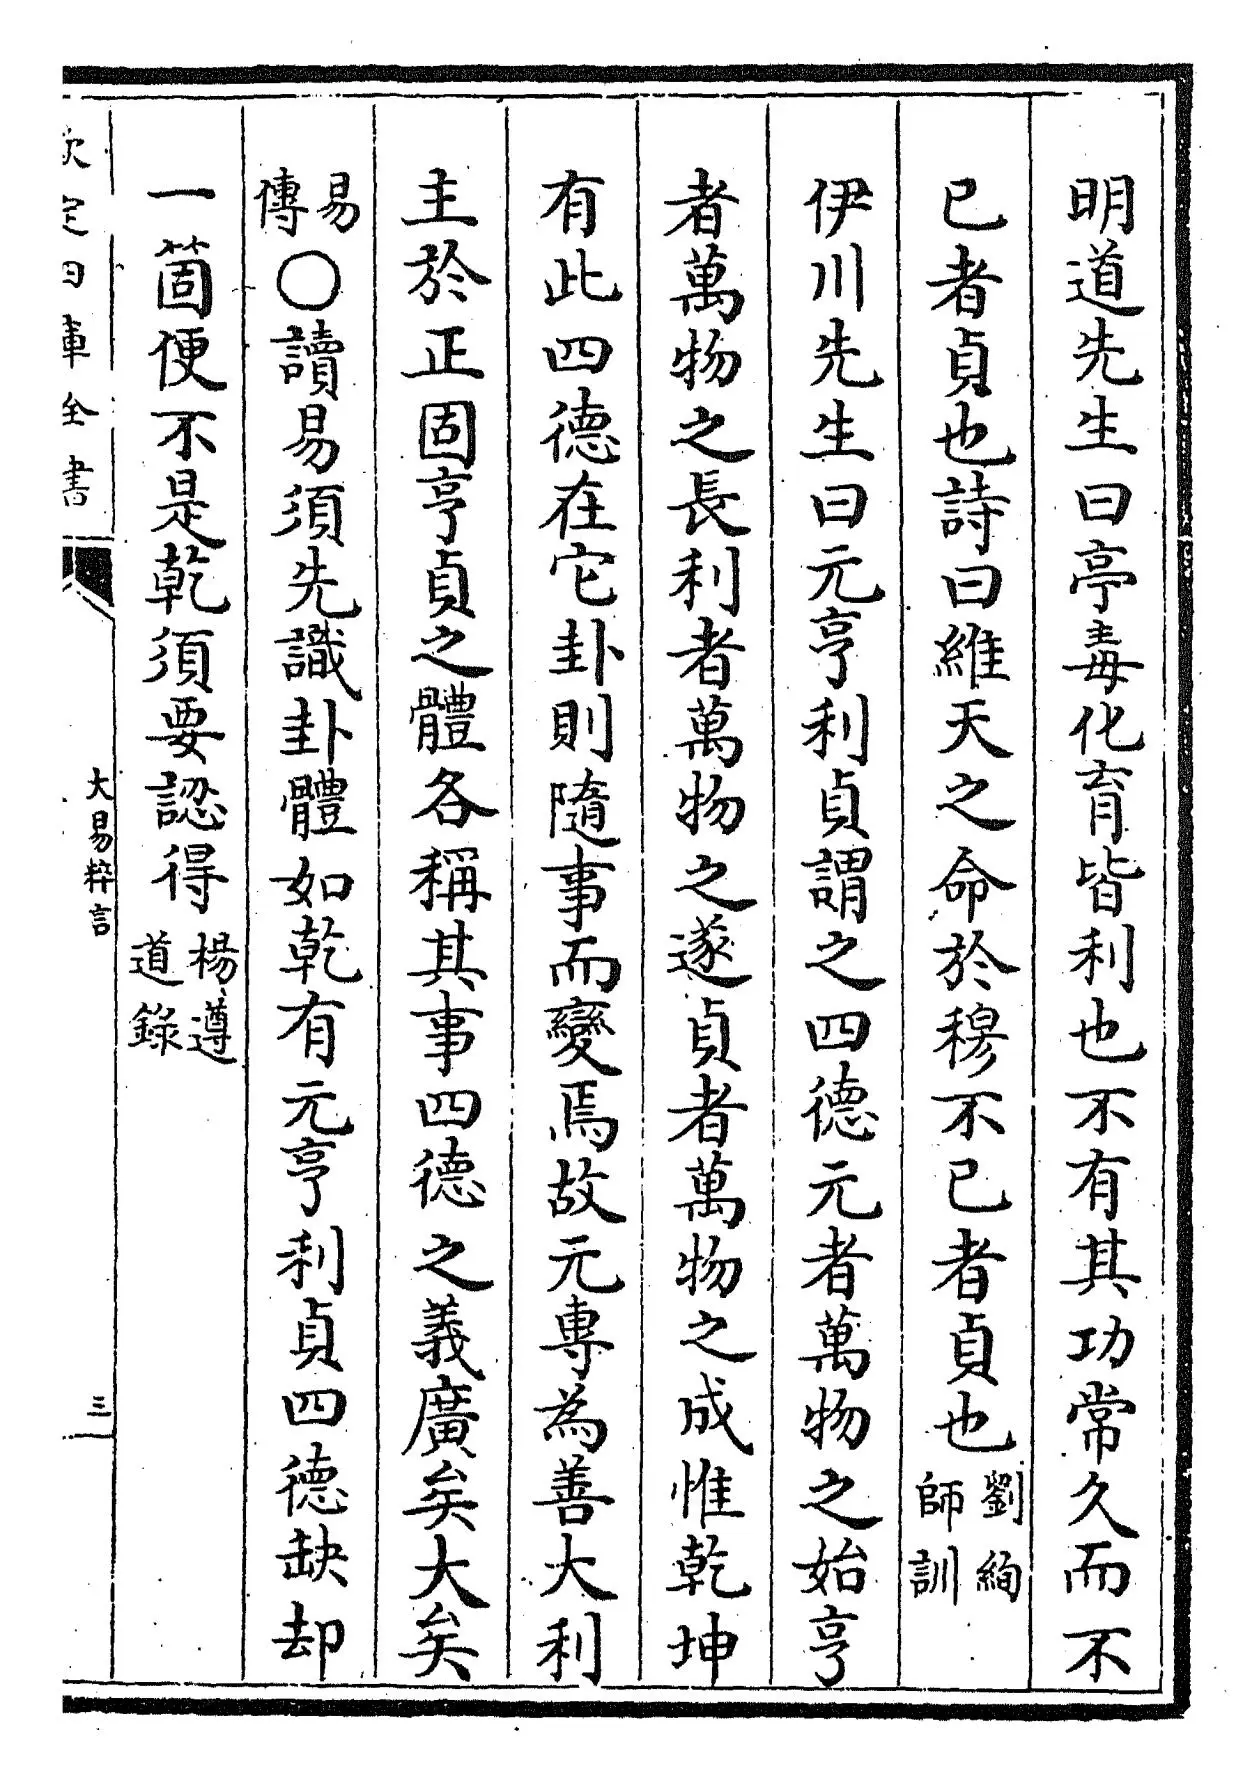 明道先生曰亭毒化育皆利也不有其功常久而不
已者貞也詩曰維天之命於穆不已者貞也劉絢師訓
伊川先生曰元亨利貞謂之四德元者萬物之始亨
者萬物之長利者萬物之遂貞者萬物之成惟乾坤
有此四德在它卦則隨事而變焉故元專為善大利
主於正固亨貞之體各稱其事四德之義廣矣大矣
易傳○讀易須先識卦體如乾有元亨利貞四德缺却
一箇便不是乾須要認得楊遵道錄
欽定四庫全書
大易粹言
三